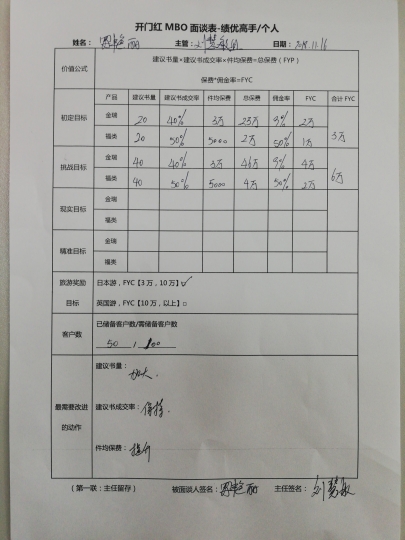 开门红 MBO 面谈表-绩优高手/个人
姓名： 主管： 日期： 2018.11.16
价值公式
建议书量*建议书成交率*件均保费=总保费（FYP）
保费*佣金率=FYC
产品 建议书量 建议书成交率 件均保费 总保费 佣金率 FYC 合计 FYC
初定目标
金瑞 20 40% 3万 23万 9% 2万
福类 20 50% 5000 2万 50% 1万
3万
挑战目标
金瑞 40 40% 3万 46万 9% 4万
福类 40 50% 5000 4万 50% 2万
6万
现实目标
金瑞
福类
精准目标
金瑞
福类
旅游奖励
目标
日本游，FYC【3 万，10 万】□✓
英国游，FYC【10 万，以上】□
客户数
已储备客户数/需储备客户数
50 / 100
最需要改进
的动作
建议书量：
加大
建议书成交率： 保持
件均保费： 提升
（第一联：主任留存） 被面谈人签名： 主任签名：